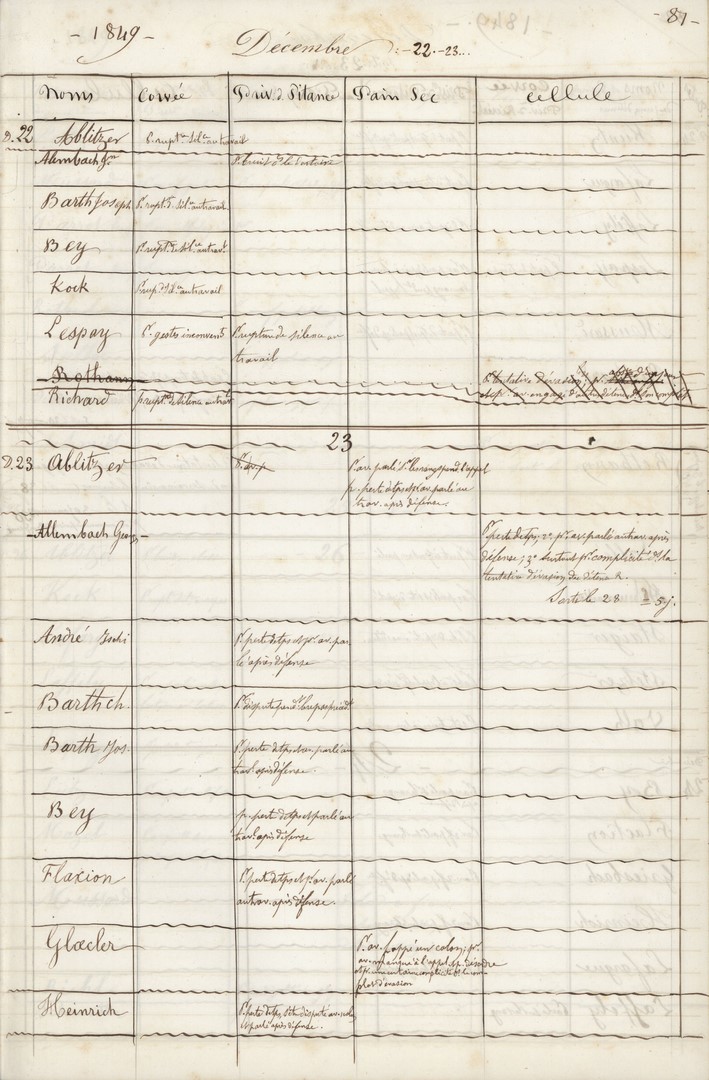 - 81 -
- 1849 -
Décembre :- 22.- 23...
Noms Corvée Priv. de Pitance Pain Sec cellule
D. 22 Ablitzer P. rupt. de sil. au travail
Alembach P. bruit
Barth Joseph P. rupt. de sil. au travail
Bey P. rupt. de sil. au trav.
Kock P. rup. de sil. au travail
Lespay P. gestes inconven. P. rupture de silence au
travail
Rothan P. tentative d'évasion; p.
Richard p. rupt. de silence au trav.
23
D. 23 Ablitzer P. av. p P. av. parlé
p. perte de tps et p. av. parlé au
trav. après défense.
Allembach Georges P. perte de tps; 2° p. av. parlé au trav. après
défense; 3° surtout p. complicité de la
tentative d'évasion du détenu R.
Sorti le 28 = 5 j.
André P. perte de tps et p. av. par
lé après défense
Barth ch. P. dispute pend.
Barth Jos. P. perte de tps et av. parlé au
trav. après défense.
Bey p. perte de tps et parlé au
trav. après défense
Flaxion P. perte de tps et p. av. parlé
au trav. après défense.
Glœcler P. av. frappé un colon; p.
av. manqué à l'appel
complicité
plot d'évasion
Heinrich P. perte de tps, dispute av.
et parlé après défense.